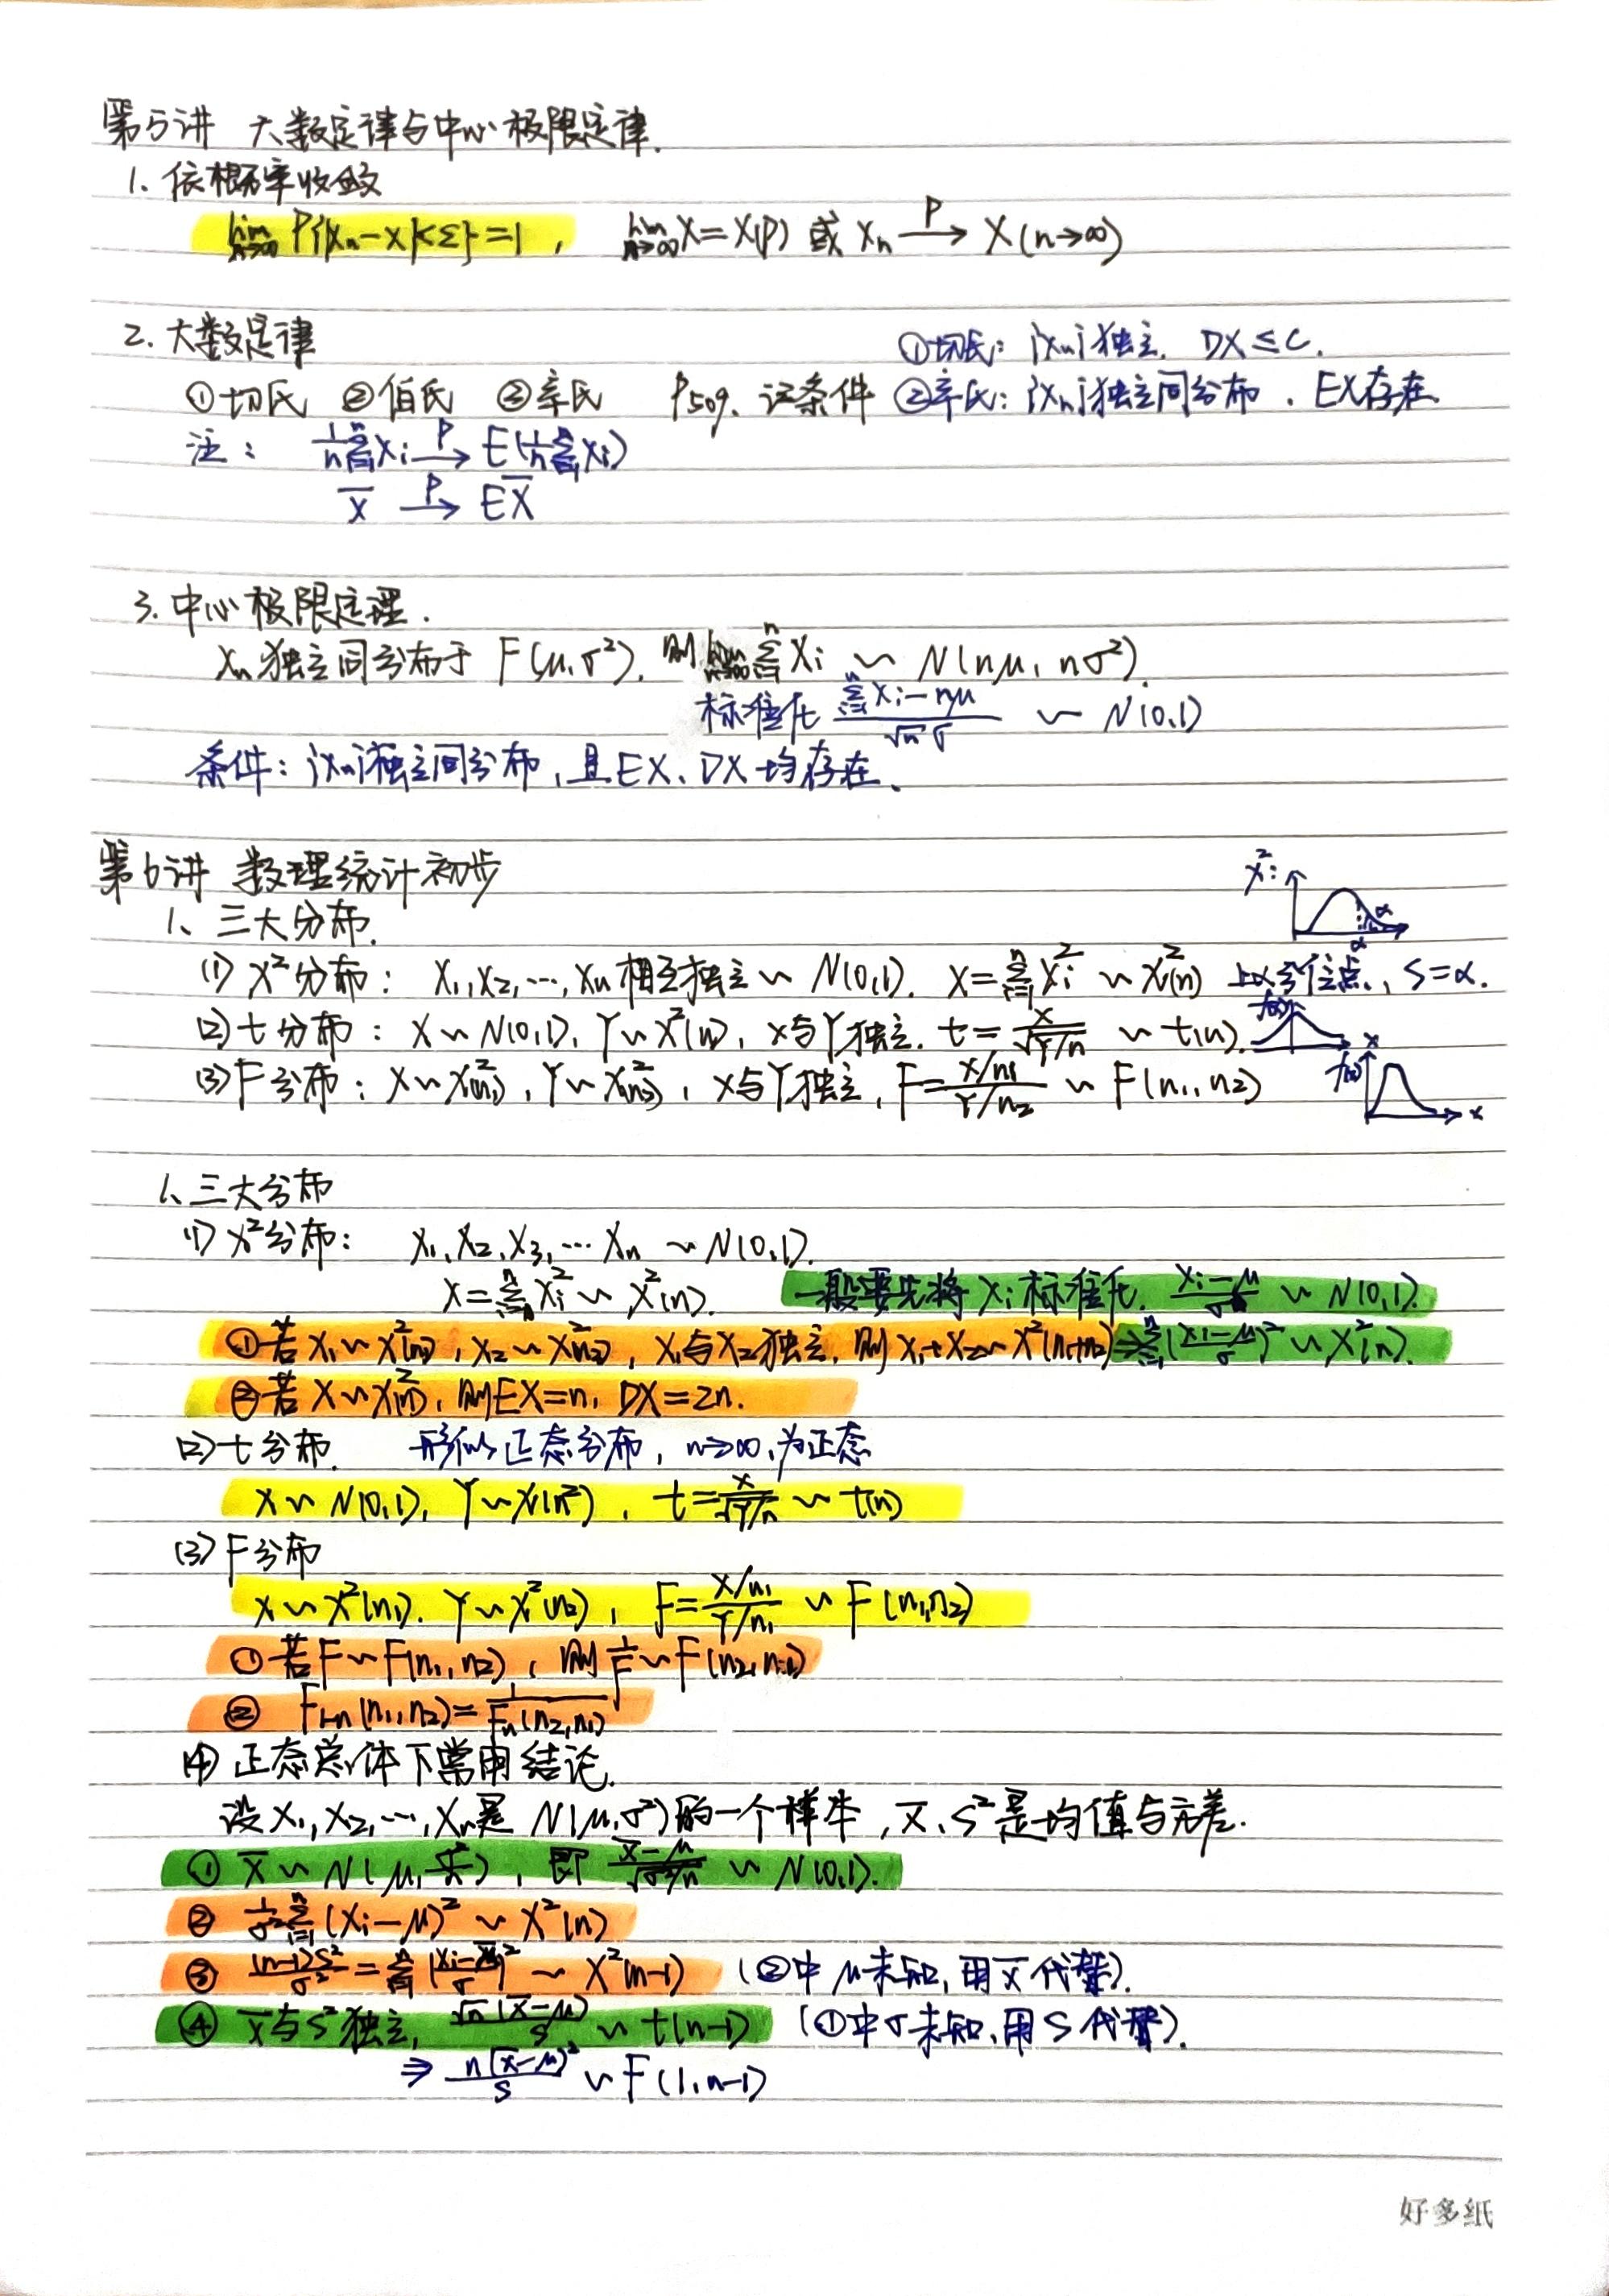 第5讲 大数定律与中心极限定律.
1. 依概率收敛
lim n→∞ P{|Xn-X|<ε}=1, lim n→∞ X=X(P) 或 Xn —P→ X(n→∞)
2. 大数定律 ①切氏: {Xn}独立. DX≤C.
①切氏 ②伯氏 ③辛氏 P509. 记条件 ②辛氏: {Xn}独立同分布, EX存在.
注: 1/n Σ(i=1→n) Xi —P→ E(1/n Σ(i=1→n) Xi)
X̄ —P→ EX̄
3. 中心极限定理.
Xn独立同分布于 F(μ,σ²). 则 lim n→∞ Σ(i=1→n) Xi ~ N(nμ, nσ²).
标准化 (Σ(i=1→n) Xi-nμ)/(√n σ) ~ N(0,1)
条件: {Xn}独立同分布, 且EX、DX均存在.
第6讲 数理统计初步
χ²: α α
1、三大分布.
(1) χ²分布: X₁,X₂,…,Xn相互独立 ~ N(0,1). X=Σ(i=1→n) Xi² ~ χ²(n) 上α分位点, S=α.
(2) t分布: X~N(0,1), Y~χ²(n), X与Y独立. t=X/√(Y/n) ~ t(n). f(x) x
(3) F分布: X~χ²(n₁), Y~χ²(n₂), X与Y独立, F=(X/n₁)/(Y/n₂) ~ F(n₁,n₂) f(x) x
1、三大分布
(1) χ²分布: X₁,X₂,X₃,…Xn ~ N(0,1).
X=Σ Xi² ~ χ²(n). 一般要先将Xi标准化. (Xi-μ)/σ ~ N(0,1).
①若X₁~χ²(n₁), X₂~χ²(n₂), X₁与X₂独立, 则X₁+X₂~χ²(n₁+n₂) ⇒Σ(i=1→n) ((Xi-μ)/σ)² ~ χ²(n).
②若X~χ²(n), 则EX=n, DX=2n.
(2) t分布. 形似正态分布, n→∞,为正态
X~N(0,1), Y~χ(n²), t=X/√(Y/n) ~ t(n)
(3) F分布
X~χ²(n₁). Y~χ²(n₂), F=(X/n₁)/(Y/n₁) ~ F(n₁,n₂)
①若F~F(n₁,n₂), 则 1/F ~ F(n₂,n₁)
② F₁₋n(n₁,n₂)=1/Fn(n₂,n₁)
(4) 正态总体下常用结论.
设X₁,X₂,…,Xn是 N(μ,σ²)的一个样本, X̄、S²是均值与方差.
① X̄~N(μ,σ²/n), 即 (X̄-μ)/√(σ²/n) ~ N(0,1).
② 1/σ² Σ(i=1→n) (Xi-μ)² ~ χ²(n)
③ (n-1)S²/σ² = Σ(i=1→n) ((Xi-X̄)/σ)² ~ χ²(n-1) (②中μ未知, 用X̄代替).
④ X̄与S²独立, √n(X̄-μ)/S ~ t(n-1) (①中σ未知, 用S代替).
⇒ n(X̄-μ)²/S ~ F(1,n-1)
好多纸